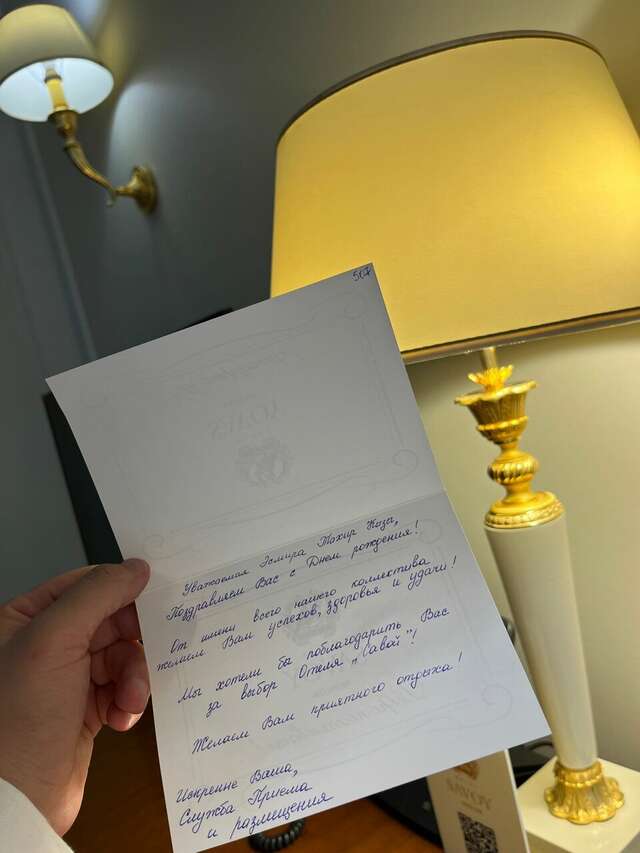 507
Уважаемая Эсмира Тахир Кизы,
Поздравляем Вас с Днем рождения!
От имени всего нашего коллектива
желаем Вам успехов, здоровья и удачи!
Мы хотели бы поблагодарить Вас
за выбор Отеля „Савой"!
Желаем Вам приятного отдыха!
Искренне Ваша,
Служба Приема
и размещения
SAVOY